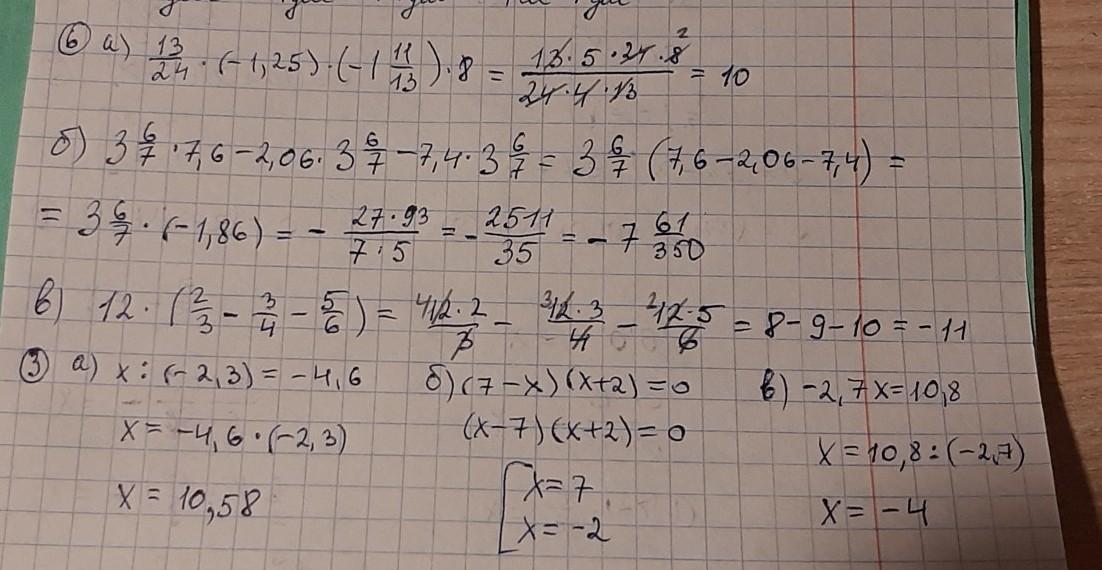 ⑥ а) 13/24 · (-1,25) · (-1 11/13) · 8 = (13 · 5 · 24 · 8 2)/(24 · 4 · 13) = 10
б) 3 6/7 · 7,6 - 2,06 · 3 6/7 - 7,4 · 3 6/7 = 3 6/7 (7,6 - 2,06 - 7,4) =
= 3 6/7 · (-1,86) = - (27 · 93)/(7 · 5) = - 2511/35 = - 7 61/350
в) 12 · (2/3 - 3/4 - 5/6) = (4 12 · 2)/3 - (3 12 · 3)/4 - (2 12 · 5)/6 = 8 - 9 - 10 = -11
③ а) x : (-2,3) = -4,6 б) (7-x)(x+2)=0 в) -2,7x=10,8
x = -4,6 · (-2,3) (x-7)(x+2)=0 x=10,8:(-2,7)
x = 10,58 [x=7 x = -4
x = -2